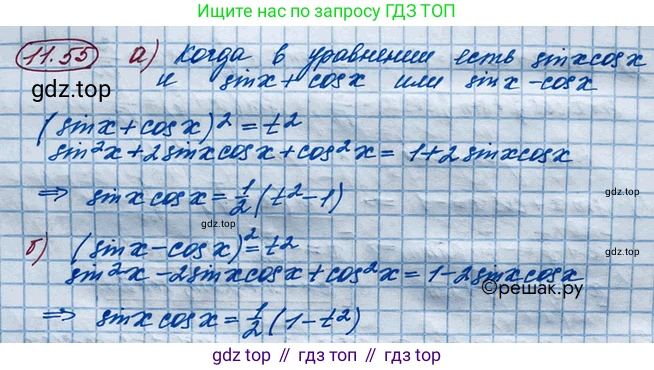 Ищите нас по запросу ГДЗ ТОП
11.55 а) Когда в уравнении есть sinxcosx
и sinx + cosx или sinx - cosx
gdz.top
(sinx + cosx)² = t²
sin²x + 2sinxcosx + cos²x = 1 + 2sinxcosx
gdz.top
⇒ sinxcosx = 1/2 (t² - 1)
gdz.top
б) (sinx - cosx)² = t²
sin²x - 2sinxcosx + cos²x = 1 - 2sinxcosx
©решак.ру
⇒ sinxcosx = 1/2 (1 - t²)
gdz.top // гдз топ // gdz.top